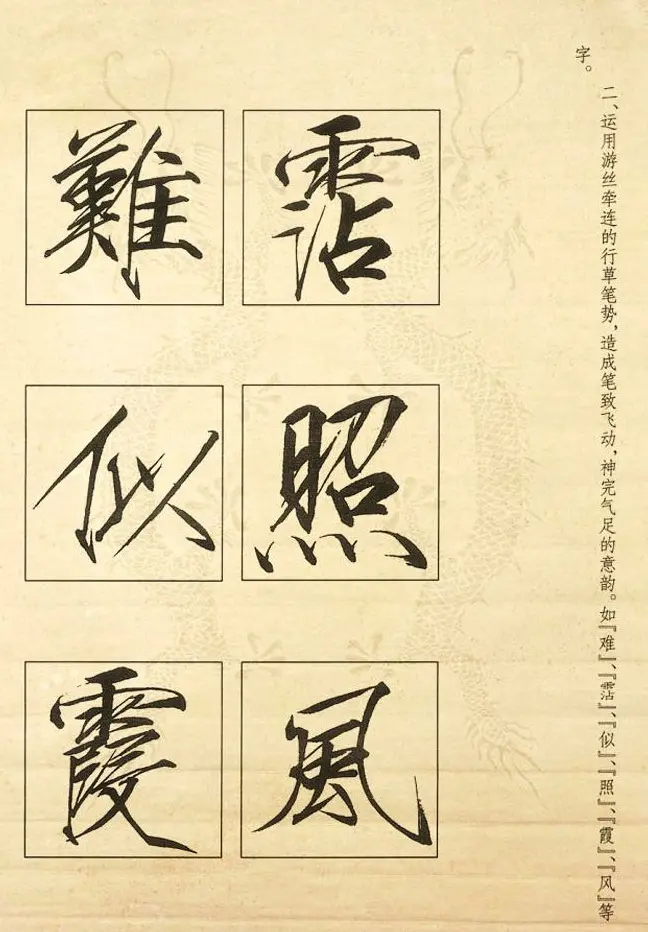 二、运用游丝牵连的行草笔势，造成笔致飞动，神完气足的意韵。如『难』、『霑』、『似』、『照』、『霞』、『风』等
字。
難
霑
似
照
霞
風